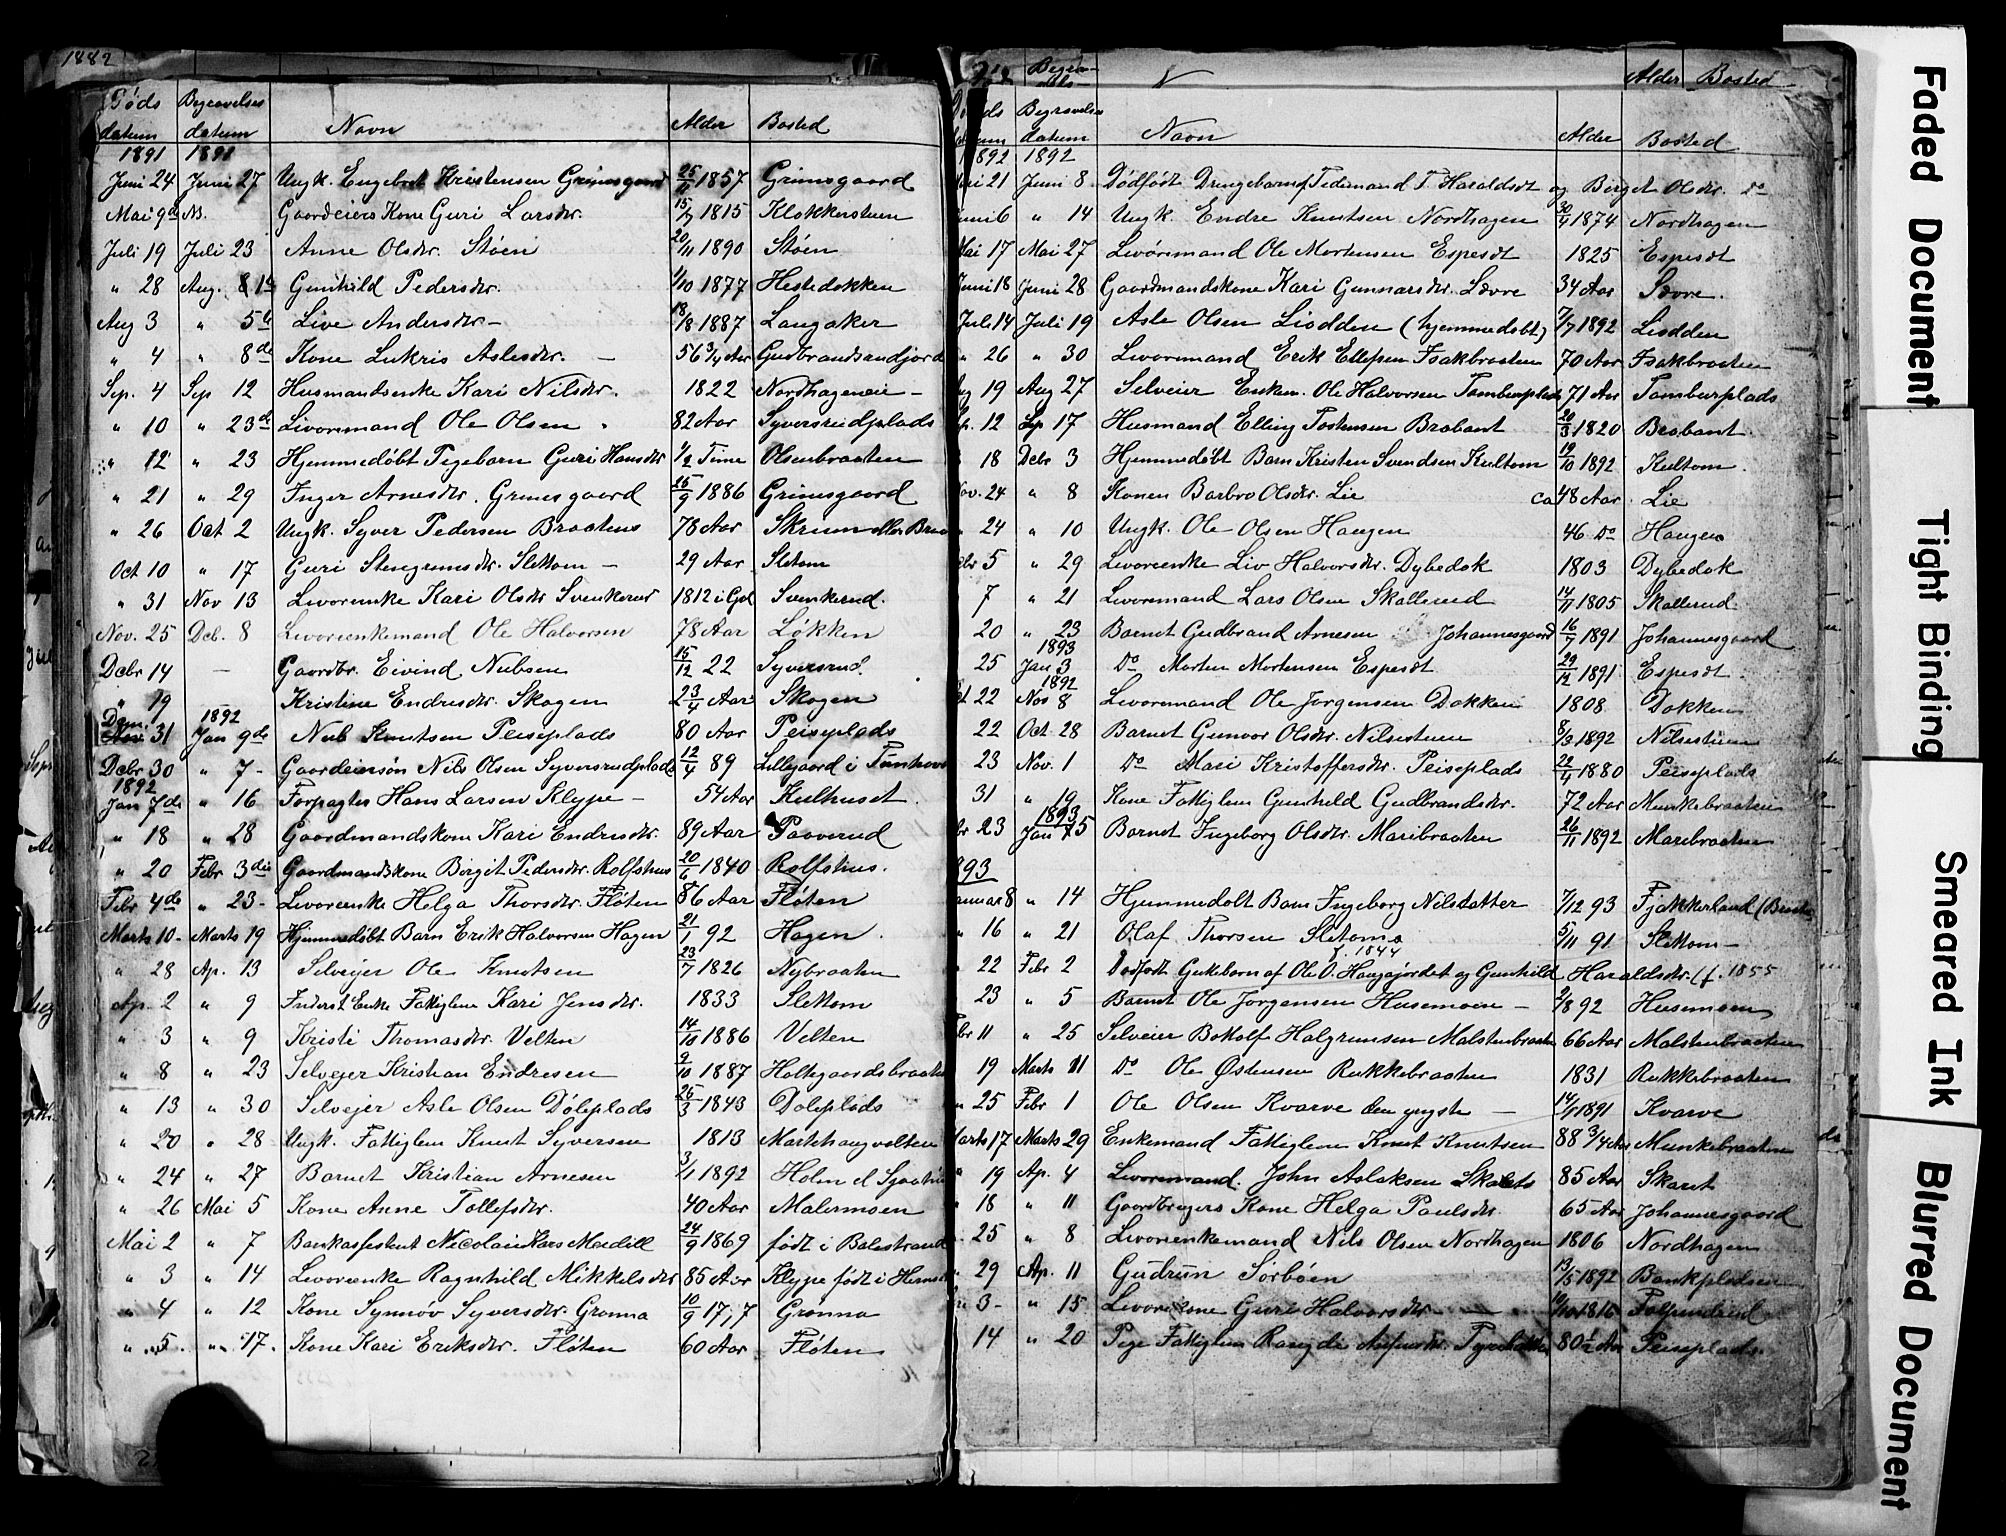 1882
Døds datum Begravelses datum Navn Alder Bosted
1891 1891
Juni 24 Juni 27 Ungk. Engebret Kristensen Grimsgaard 1857 Grimsgaard
Mai 9de Gaardeiers Kone Guri Larsdtr. 15/9 1815 Klokkerstuen
Juli 19 Juli 23 Anne Olsdtr. Støen 20/11 1890 Støen
" 28 Aug. Gunhild Pedersdtr. 1/10 1877 Hestedokken
Aug 3 " 5te Live Andersdtr. 18/8 1887 Langaker
" 4 " 8de Kone Lukris Aslesdtr. — 56 3/4 Aar Gudbrandsrudjord
Sep. 4 Sep 12 Husmandsenke Kari Nilsdtr. 1822 Nordhageneie
" 10 " 23de Livøremand Ole Olsen 82 Aar Syversrudplads
" 12 " 23 Hjemmedøbt Pigebarn Guri Hansdtr 1/2 Time Olsenbraaten
" 21 " 29 Inger Arnesdtr. Grimsgaard 25/9 1886 Grimsgaard
" 26 Oct 2 Ungk. Syver Pedersen Braatens 78 Aar
Oct 10 " 17 Guri Stengrimsdtr. Slettom — 29 Aar Sletom
" 31 Nov 13 Livørenke Kari Olsdtr Svenkerud 1812 Svenkerud.
Nov. 25 Dcb. 8 Livørenkemand Ole Halvorsen 78 Aar Løkken
Dcbr 14 — Gaardbr. Eivind Nubsen 15/12 22 Syversrud.
" 19 Kristine Endresdtr. Skogen 2 3/4 Aar Skogen
Dcm. 1892
31 Jan 9de Nub Knutsen Peiseplads 80 Aar Peiseplads
Dcbr 30 " 7 - Gaardeiersøn Nils Olsen Syversrudplads 12/4 89 Lillegaard i Tunhovd
1892
Jan 7de " 16 Forpagter Hans Larsen Klype — 54 Aar Kulhuset
" 18 " 28 Gaardmandskone Kari Endresdtr. 89 Aar Paaverud
" 20 Febr 3die Gaardmandskone Birgit Pedersdtr. Rolfshus 20/6 1840 Rolfshus.
Febr 4de " 23 - Livørenke Helga Thorsdtr. Fløten 86 Aar Fløten
Marts 10 - Marts 19 Hjemmedøbt Barn Erik Halvorsen Hagen 21/1 92 Hagen.
" 28 Ap. 13 Selveijer Ole Knutsen 23/7 1826 Nybraaten
Ap. 2 " 9 Inderst Enke Fattiglem Kari Jensdtr. 1833 Slettom
" 3 " 9 Kristi Thomasdtr. Velten 14/10 1886 Velten
" 8 " 23 Selvejer Kristian Endresen 9/10 1887 Holtegaardsbraaten
" 13 " 30 Selvejer Asle Olsen Døleplads 25/3 1843 Døleplads
" 20 " 28 Ungk. Fattiglem Knut Syversen 1813 Markhaugvelten
" 24 " 27 Barnet Kristian Arnesen 3/1 1892 Holm
" 26 Mai 5 Kone Anne Tollefsdtr. 40 Aar Malermoen
Mai 2 " 7 Bankassistent Nicolai Kars Meidell 24/9 1869 født i Balestrand
" 3 " 14 Livørenke Ragnhild Mikkelsdtr 85 Aar Klype født i
" 4 " 12 Kone Synnøv Syversdtr. Grønna 10/9 Grønna
" 5 " 17. Kone Kari Eriksdtr. Fløten 60 Aar Fløten
Alder Bosted
Begravelses datum Navn Alder Bosted
1892 1892
21 Juni 8 Dødfødt Drengebarn af Tidemand T. Haraldsdt og Birgit Olsdtr. Do
Juni 6 " 14 Ungk. Endre Knutsen Nordhagen 30/9 1874 Nordhagen
Mai 17 Mai 27 Livøremand Ole Mortensen Espesdt 1825 Espesdt
Juni 18 Juni 28 Gaardmandskone Kari Gunnarsdtr. Sævre 34 Aar Sævre.
Juli 14 Juli 19 Asle Olsen Liodden (hjemmedøbt) 7/7 1892 Liodden
26 " 30 Livøremand Erik Ellefsen Isakbraaten 70 Aar Isakbraaten
19 Aug 27 Selveier Enkem. Ole Halvorsen Tamburplads 71 Aar Tamburplads
12 Sep 17 Husmand Elling Tostensen Brabant 20/3 1820 Brabant.
18 Decbr 3 Hjemmedøbt Barn Kristen Svendsen Kultom 19/10 1892 Kultom.
Nov. 24 " 8 Konen Barbro Olsdtr. Lie ca 48 Aar. Lie
24 " 10 Ungk. Ole Olsen Haugen 46 Do Haugen
5 " 29 Livørenke Liv Halvorsdtr. Dybedok 1803 Dybedok
7 " 21 Livøremand Lars Olsen Skallerud 14/11 1805 Skallerud.
20 " 23 Barnet Gudbrand Arnesen Johannesgaard 16/7 1891 Johannesgaard
1893
25 Jan 3 Do Morten Mortensen Espesdt 29/12 1891 Espesdt.
1892
22 Nov 8 Livøremand Ole Jørgensen Dokken 1808 Dokken
22 Oct 28 Barnet Gunvor Olsdtr. Nilsestuen 8/3 1892 Nilsestuen
23 Nov. 1 Do Mari Kristoffersdtr. Peiseplads 22/4 1880 Peiseplads
31 " 19 Kone Fattiglem Gunhild Gudbrandsdtr. 72 Aar Munkebraaten
1893
23 Jan Barnet Ingeborg Olsdtr. Maribraaten 26/11 1892 Maribraaten
893
Januar 8 " 14 Hjemmedøbt Barn Ingeborg Nilsdatter 7/12 93
16 " 21 Olaf Thorsen Sletom 5/11 91 Slettom —
f. 1844
22 Febr 2 Dødfødt Gutebarn af Ole O. Haugajordet og Gunhild Haraldsdtr. (f. 1855
23 " 5 Barnet Ole Jørgensen Husemoen — 2/8 92 Husemoen
11 " 25 Selveier Botolf Halgrimsen Malstenbraaten 66 Aar Malstenbraaten
19 Marts 11 Do Ole Østensen Rukkebraaten 1831 Rukkebraaten
25 Febr 1 Ole Olsen Kvarve den yngste — 14/1 1891 Kvarve
Marts 17 Marts 29 Enkemand Fattiglem Knut Knutsen 88 3/4 Aar Munkebraaten
19 Ap. 4 Livøremand. John Aslaksen Skarets 85 Aar Skaret
18 " 11 Gaardbrugers Kone Helga Paulsdtr. 65 Aar Johannesgaard
25 " 8 Livørenkemand Nils Olsen Nordhagen 1806 Nordhagen
29 Ap. 11 Gudrun Sørbøen 13/5 1892 Bankpladsen
3 - " 15 Livørekone Guri Halvorsdtr. — 1816
14 " 20 Pige Fattiglem 80 1/2 Aar Peiseplads.
Faded Document
Tight Binding
Smeared Ink
Blurred Document